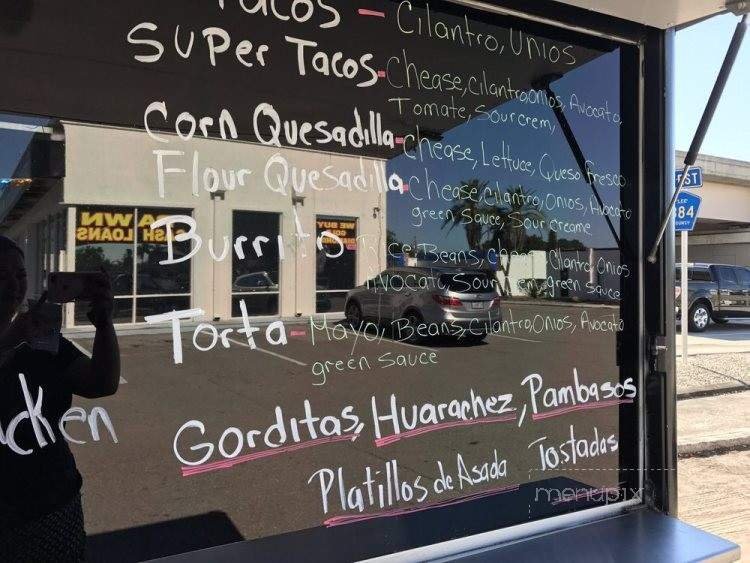 Tacos - Cilantro, Unios
SUPer Tacos - Chease, cilantro, onios, Avocato,
Tomate, Sour crem,
Corn Quesadilla - Chease, Lettuce, Queso Fresco
Flour Quesadilla - Chease, cilantro, Onios, Avocato
green Sauce, Sour Creame
Burrito - Rice, Beans, chees, Cilantro, Onios
Avocato, Sour crem, green sauce
Torta - Mayo, Beans, Cilantro, Onios, Avocato
green sauce
cken
Gorditas, Huarachez, Pambasos
Platillos de Asada Tostadas
PAWN
CASH LOANS
WE BUY
GOLD
EST
LEE
884
COUNTY
menupix